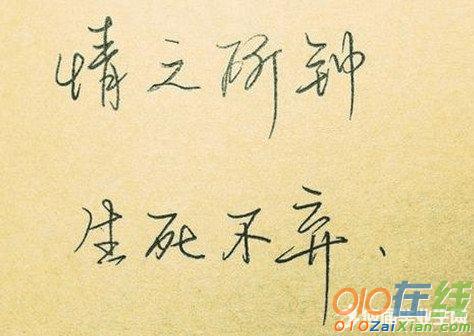 情之所钟
生死不弃、
010在线
010ZaiXian.com